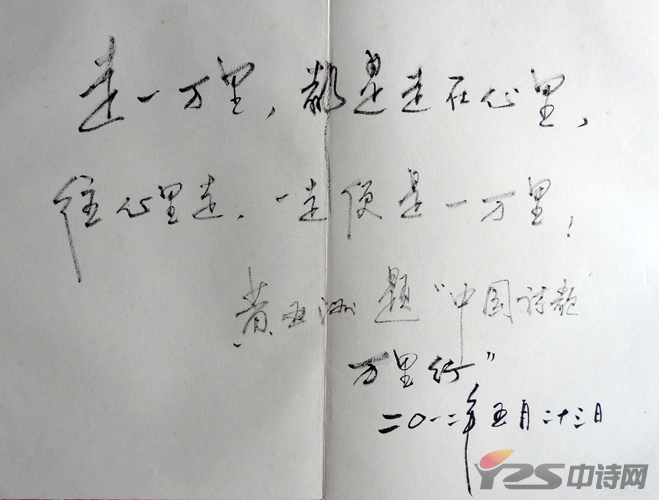 走一万里，都是走在心里，
往心里走，一走便是一万里！
黄亚洲题“中国诗歌
万里行”
二〇一二年五月二十三日
YZS中诗网